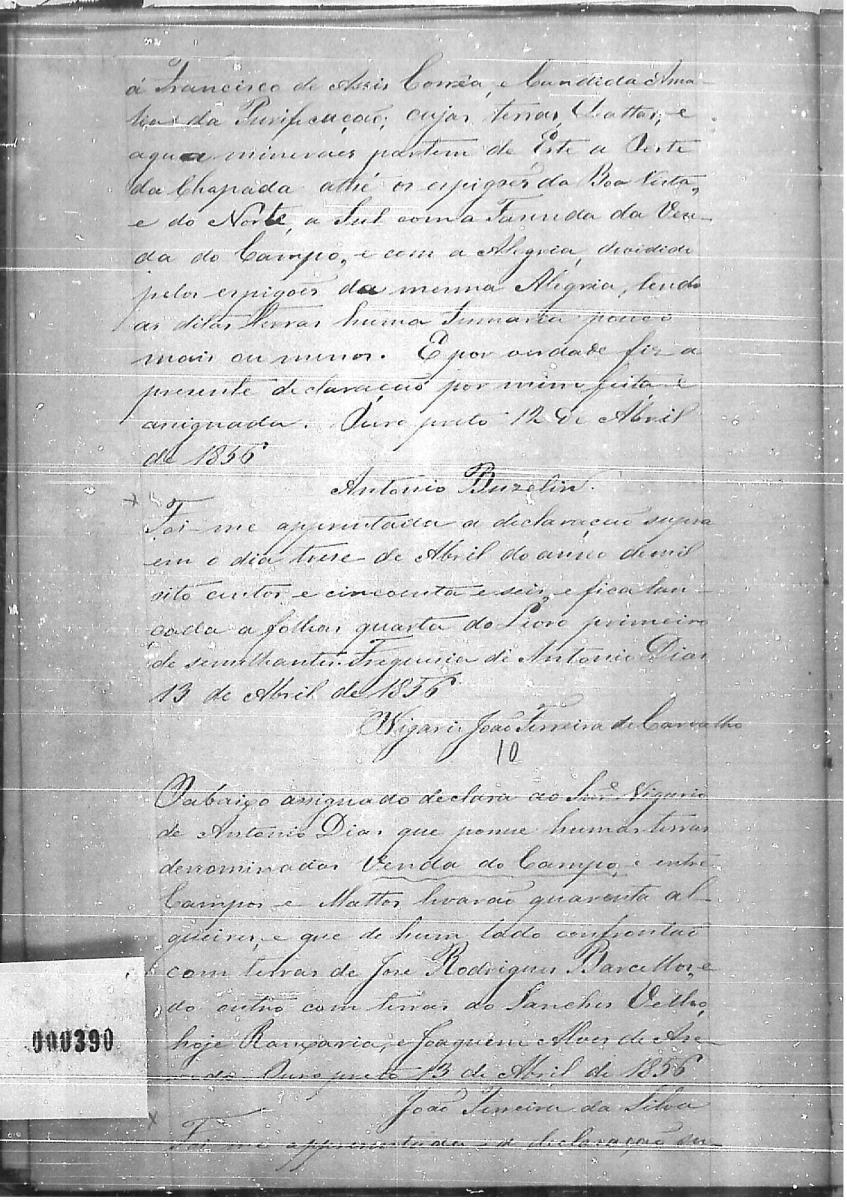 á Francisco de Assis Corrêa, e Candida Ama-
lia da Purificação, cujas terras Mattos, e
aguas mineraes partem de Este a Oeste
da Chapada athé os espigões da Boa Vista,
e do Norte, a Sul com a Fasenda da Ven-
da do Campo, e com a Alegria, dividido
pelos espigões da mesma Alegria, tendo
as ditas terras huma Sesmaria pouco
mais ou menos. E por verdade fiz a
presente declaração por mim feita e
assignada. Ouro preto 12 de Abril
de 1856
Antonio Buzelin.
Foi-me appresentada a declaração supra
em o dia trese de Abril do anno de mil
oito centos e cincoenta e seis, e fica lan-
çada a folhas quarta do Livro primeiro
de semelhantes. Freguesia de Antonio Dias
13 de Abril de 1856
O Vigario João Ferreira de Carvalho
10
O abaixo assignado declara ao Snr. Vigario
de Antonio Dias que possue humas terras
denominadas Venda do Campo, e entre
Campos e Mattos levarão quarenta al-
queires, e que de hum lado confrontão
com terras de José Rodrigues Barcellos, e
do outro com terras do Sanches Velho,
hoje Rancharia, e Joaquim Alves de Ase-
vedo. Ouro preto 13 de Abril de 1856
João Ferreira da Silva
Foi-me appresentada a declaração su-
000390